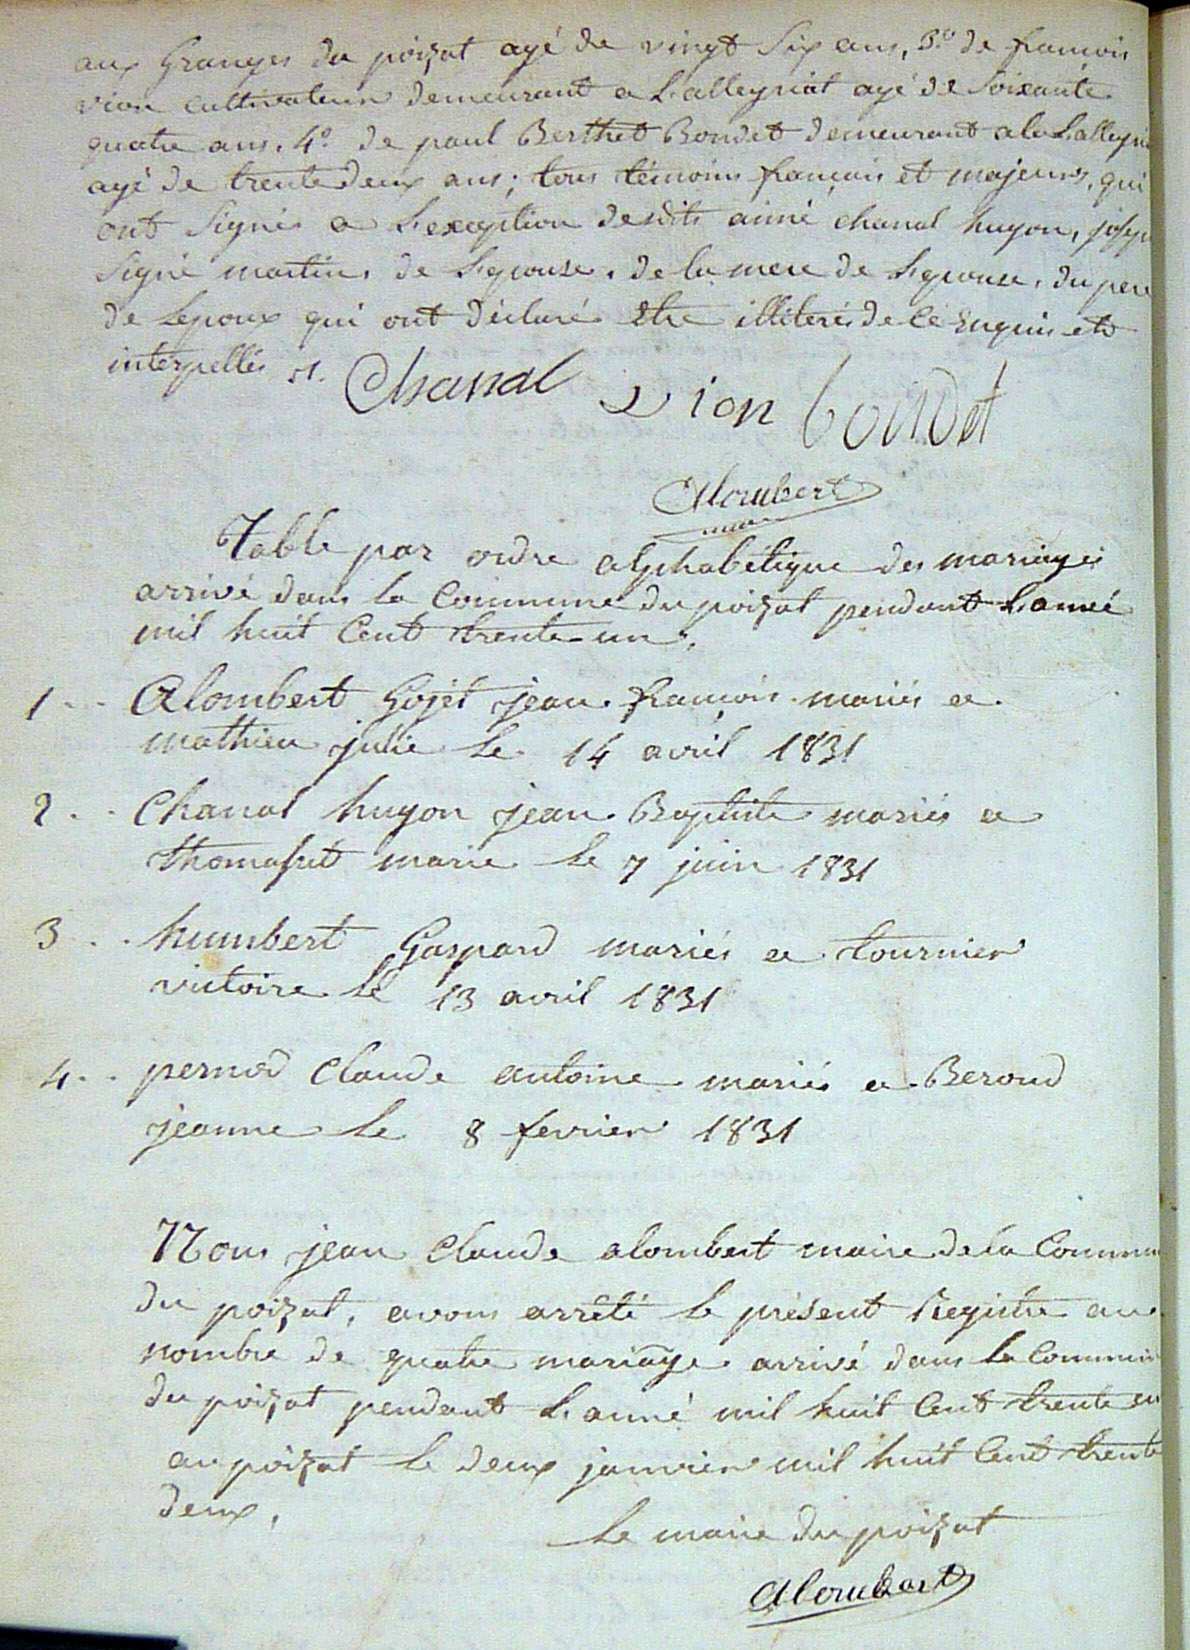 aux Granges du poizat agé de vingt Six ans, 3.º de françois
vion cultivateur demeurant a Lalleyriat agé de Soixante
quatre ans, 4º de paul Berthet Bondet demeurant a la Lalleyri
agé de trente deux ans; tous témoins français et majeurs, qui
ont Signés a L'exception desdits aimé chanal hugon, joseph
Signé martin, de L'epouse, de la mere de L'epouse, du pere
de Lepoux qui ont déclaré Etre illiterés de ce Enquis et
interpellés
Chanal vion bondet
Aloubert
Table par ordre alphabétique des mariages
arrivé dans la Commune du poizat pendant L'anneé
mil huit Cent trente un,
1 Alombert Gojet jean françois mariés a
mathieu julie Le 14 avril 1831
2 Chanal hugon jean Baptiste mariés a
thomasset marie Le 7 juin 1831
3 humbert Gaspard mariés a tournier
victoire Le 13 avril 1831
4 pernod Claude antoine mariés a Beroud
jeanne Le 8 fevrier 1831
Nous jean Claude alombert maire de la Commun
du poizat, avons arrêté le présent Registre au
nombre de quatre mariage arrivé dans la Commun
du poizat pendant L'anné mil huit Cent trente un
au poizat le deux janvier mil huit Cent trente
deux,
Le maire du poizat
Aloubert